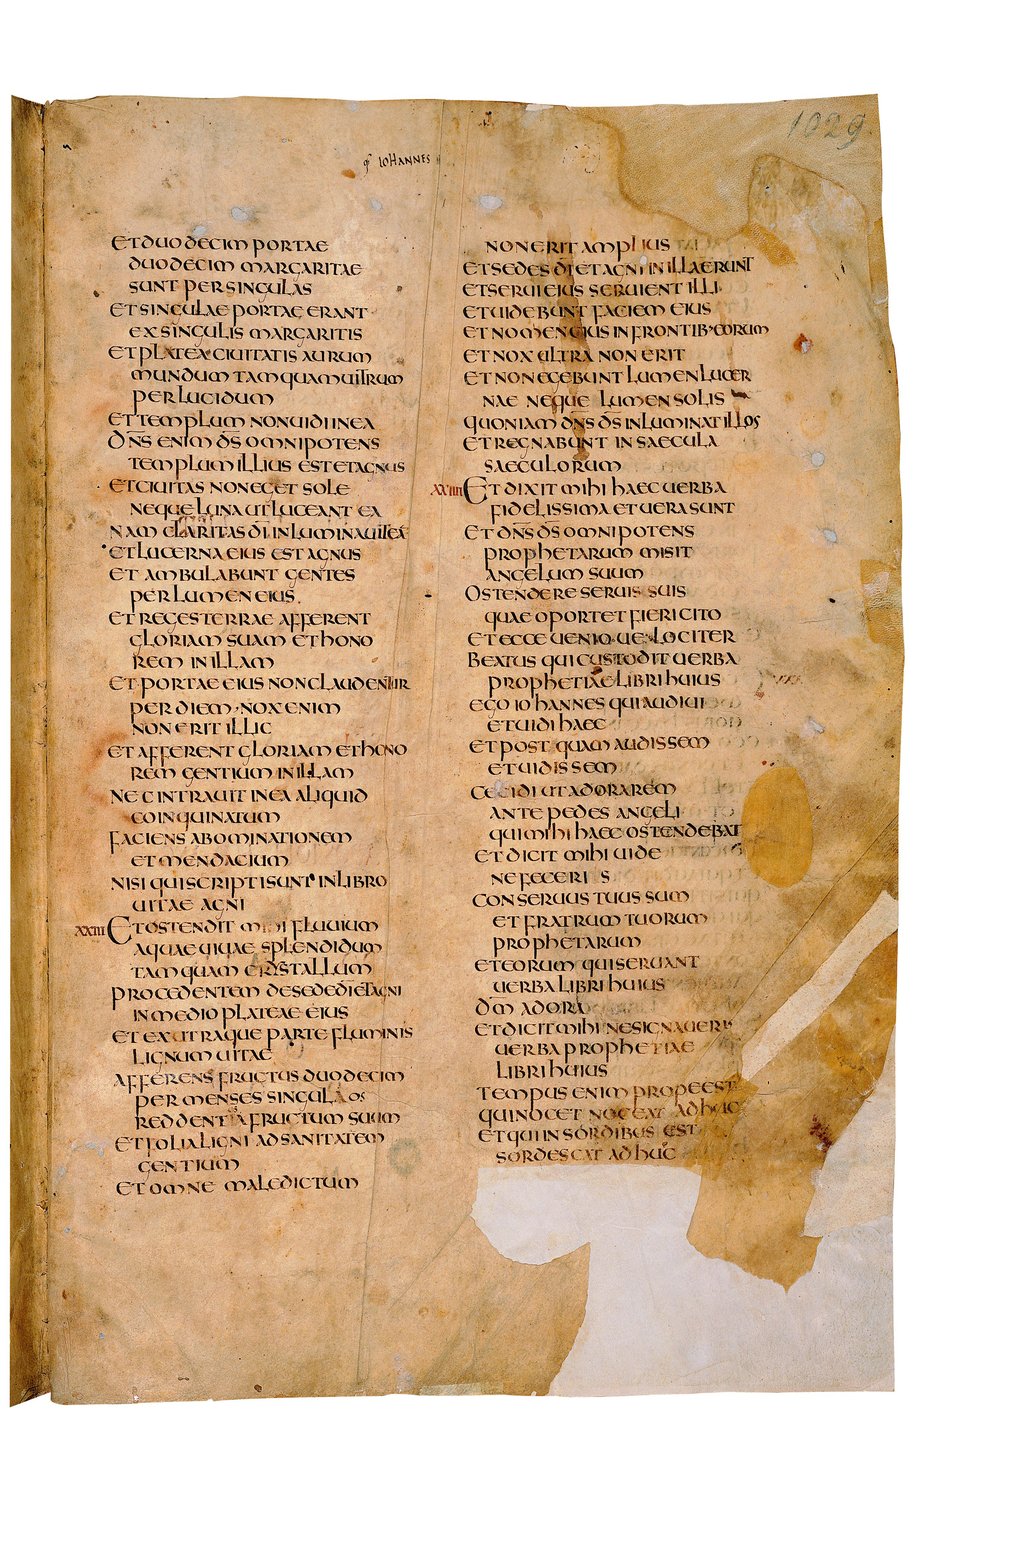 1029
IOHANNES
ET DUODECIM PORTAE
DUODECIM MARGARITAE
SUNT PER SINGULAS
ET SINGULAE PORTAE ERANT
EX SINGULIS MARGARITIS
ET PLATEA CIUITATIS AURUM
MUNDUM TAMQUAM UITRUM
PERLUCIDUM
ET TEMPLUM NON UIDI IN EA
DNS ENIM DS OMNIPOTENS
TEMPLUM ILLIUS EST ET AGNUS
ET CIUITAS NON EGET SOLE
NEQUE LUNA UT LUCEANT EA
NAM CLARITAS DI INLUMINAUIT EA
ET LUCERNA EIUS EST AGNUS
ET AMBULABUNT GENTES
PER LUMEN EIUS
ET REGES TERRAE AFFERENT
GLORIAM SUAM ET HONO
REM IN ILLAM
ET PORTAE EIUS NON CLAUDENTUR
PER DIEM NOX ENIM
NON ERIT ILLIC
ET AFFERENT GLORIAM ET HONO
REM GENTIUM IN ILLAM
NEC INTRAUIT IN EA ALIQUID
COINQUINATUM
FACIENS ABOMINATIONEM
ET MENDACIUM
NISI QUI SCRIPTI SUNT IN LIBRO
UITAE AGNI
XXIII ET OSTENDIT FLUUIUM
AQUAE UIUAE SPLENDIDUM
TAMQUAM CRYSTALLUM
PROCEDENTEM DE SEDE DI ET AGNI
IN MEDIO PLATEAE EIUS
ET EX UTRAQUE PARTE FLUMINIS
LIGNUM UITAE
AFFERENS FRUCTUS DUODECIM
PER MENSES SINGULOS
REDDENTIA FRUCTUM SUUM
ET FOLIA LIGNI AD SANITATEM
GENTIUM
ET OMNE MALEDICTUM
NON ERIT AMPLIUS
ET SEDES DI ET AGNI IN ILLA ERUNT
ET SERUI EIUS SERUIENT ILLI
ET UIDEBUNT FACIEM EIUS
ET NOMEN EIUS IN FRONTIB· EORUM
ET NOX ULTRA NON ERIT
ET NON EGEBUNT LUMEN LUCER
NAE NEQUE LUMEN SOLIS
QUONIAM DNS DS INLUMINAT ILLOS
ET REGNABUNT IN SAECULA
SAECULORUM
XXIIII ET DIXIT MIHI HAEC UERBA
FIDELISSIMA ET UERA SUNT
ET DNS DS OMNIPOTENS
PROPHETARUM MISIT
ANGELUM SUUM
OSTENDERE SERUIS SUIS
QUAE OPORTET FIERI CITO
ET ECCE UENIO UELOCITER
BEATUS QUI CUSTODIT UERBA
PROPHETIAE LIBRI HUIUS
EGO IOHANNES QUI AUDIUI
ET UIDI HAEC
ET POST QUAM AUDISSEM
ET UIDISSEM
CECIDI UT ADORAREM
ANTE PEDES ANGELI
QUI MIHI HAEC OSTENDEBAT
ET DICIT MIHI UIDE
NE FECERIS
CONSERUUS TUUS SUM
ET FRATRUM TUORUM
PROPHETARUM
ET EORUM QUI SERUANT
UERBA LIBRI HUIUS
DM ADORA
ET DICIT MIHI NE SIGNAUERIS
UERBA PROPHETIAE
LIBRI HUIUS
TEMPUS ENIM PROPE EST
QUI NOCET NOCEAT ADHUC
ET QUI IN SORDIBUS EST
SORDESCAT ADHUC